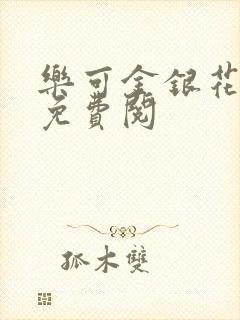 樂可金銀花
免費閱
孤木雙